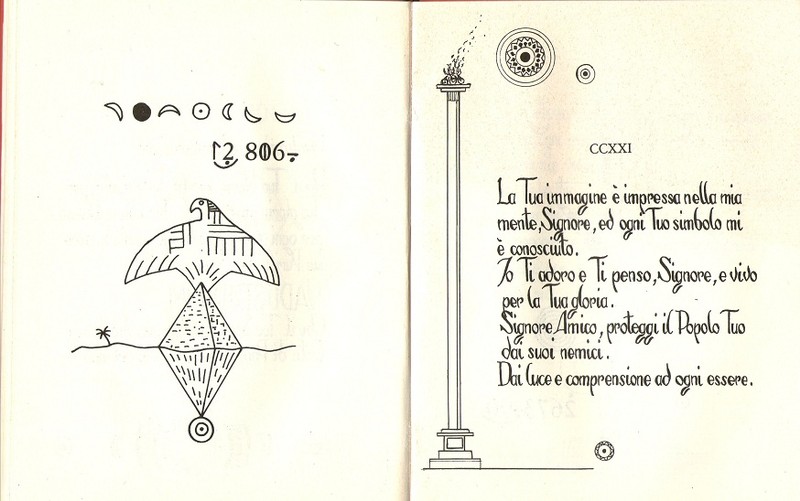 12 806
CCXXI
La Tua immagine è impressa nella mia
mente, Signore, ed ogni Tuo simbolo mi
è conosciuto.
Io Ti adoro e Ti penso, Signore, e vivo
per la Tua gloria.
Signore Amico, proteggi il Popolo Tuo
dai suoi nemici.
Dai luce e comprensione ad ogni essere.